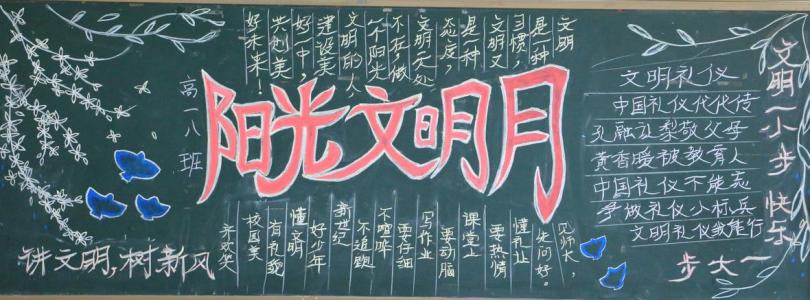 阳光文明月
高一八班
文明
是一种
习惯，
文明又
是一种
态度
文明无处
不在，做
个阳光
文明的人
建设美
好中，
共创美
好未来！
文明礼仪
中国礼仪代代传
孔融让梨敬父母
黄香暖被教育人
中国礼仪不能忘
争做礼仪小标兵
文明礼仪我能行
文明一小步 快乐
一大步
见师长，
先问好。
懂礼让
要热情
课堂上
要动脑
写作业
要仔细
不喧哗
不追跑
新世纪
好少年
懂文明
有礼貌
校园美
齐欢笑
讲文明，树新风